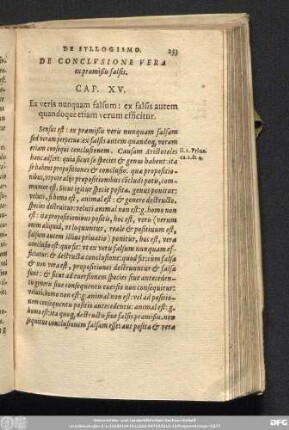 DE SYLLOGISMO. 293
DE CONCLVSIONE VERA
ex præmissis falsis.
CAP. XV.
Ex veris nunquam falsum: ex falsis autem
quandoque etiam verum efficitur.
Sensus est: ex præmissis veris nunquam falsum
sed verum perpetuo: ex falsis autem quandoq; verum
etiam conseq conclusionem. Causam Aristoteles
hanc assert: quia sicut se species & genus habent: ita
se habent propositiones & conclusio. qua propositio-
nibus, utpote aliis propositionibus est
munior est. Sicut igitur specie posita, genus ponitur:
veluti, si homo est, animal est: & genere destructo,
species destruitur: veluti animal non est: g. homo non
est: ita propositionibus positis, hoc est, veris (verum
enim aliquid, ve loquuntur, reale & positiuum est,
falsum autem illius priuatio) ponitur, hoc est, vera
conclusio est: quo fit: vt ex veris falsum nunquam ef-
ficiatur: & destructa conclusione: quod fit: cùm falsa
& non vera est, propositiones destruuntur & falsæ
sunt: & sicut ad euersionem speciei siue anteceden-
tis generis siue consequentis euersio non consequitur:
veluti, homo non est: g. animal non est: vel ad positio-
nem consequentis positio antecedentis: animal est: g.
homo est: ita quoq; destructis siue falsis præmissis, non
sequitur conclusionem falsam esse: aut posita & vera